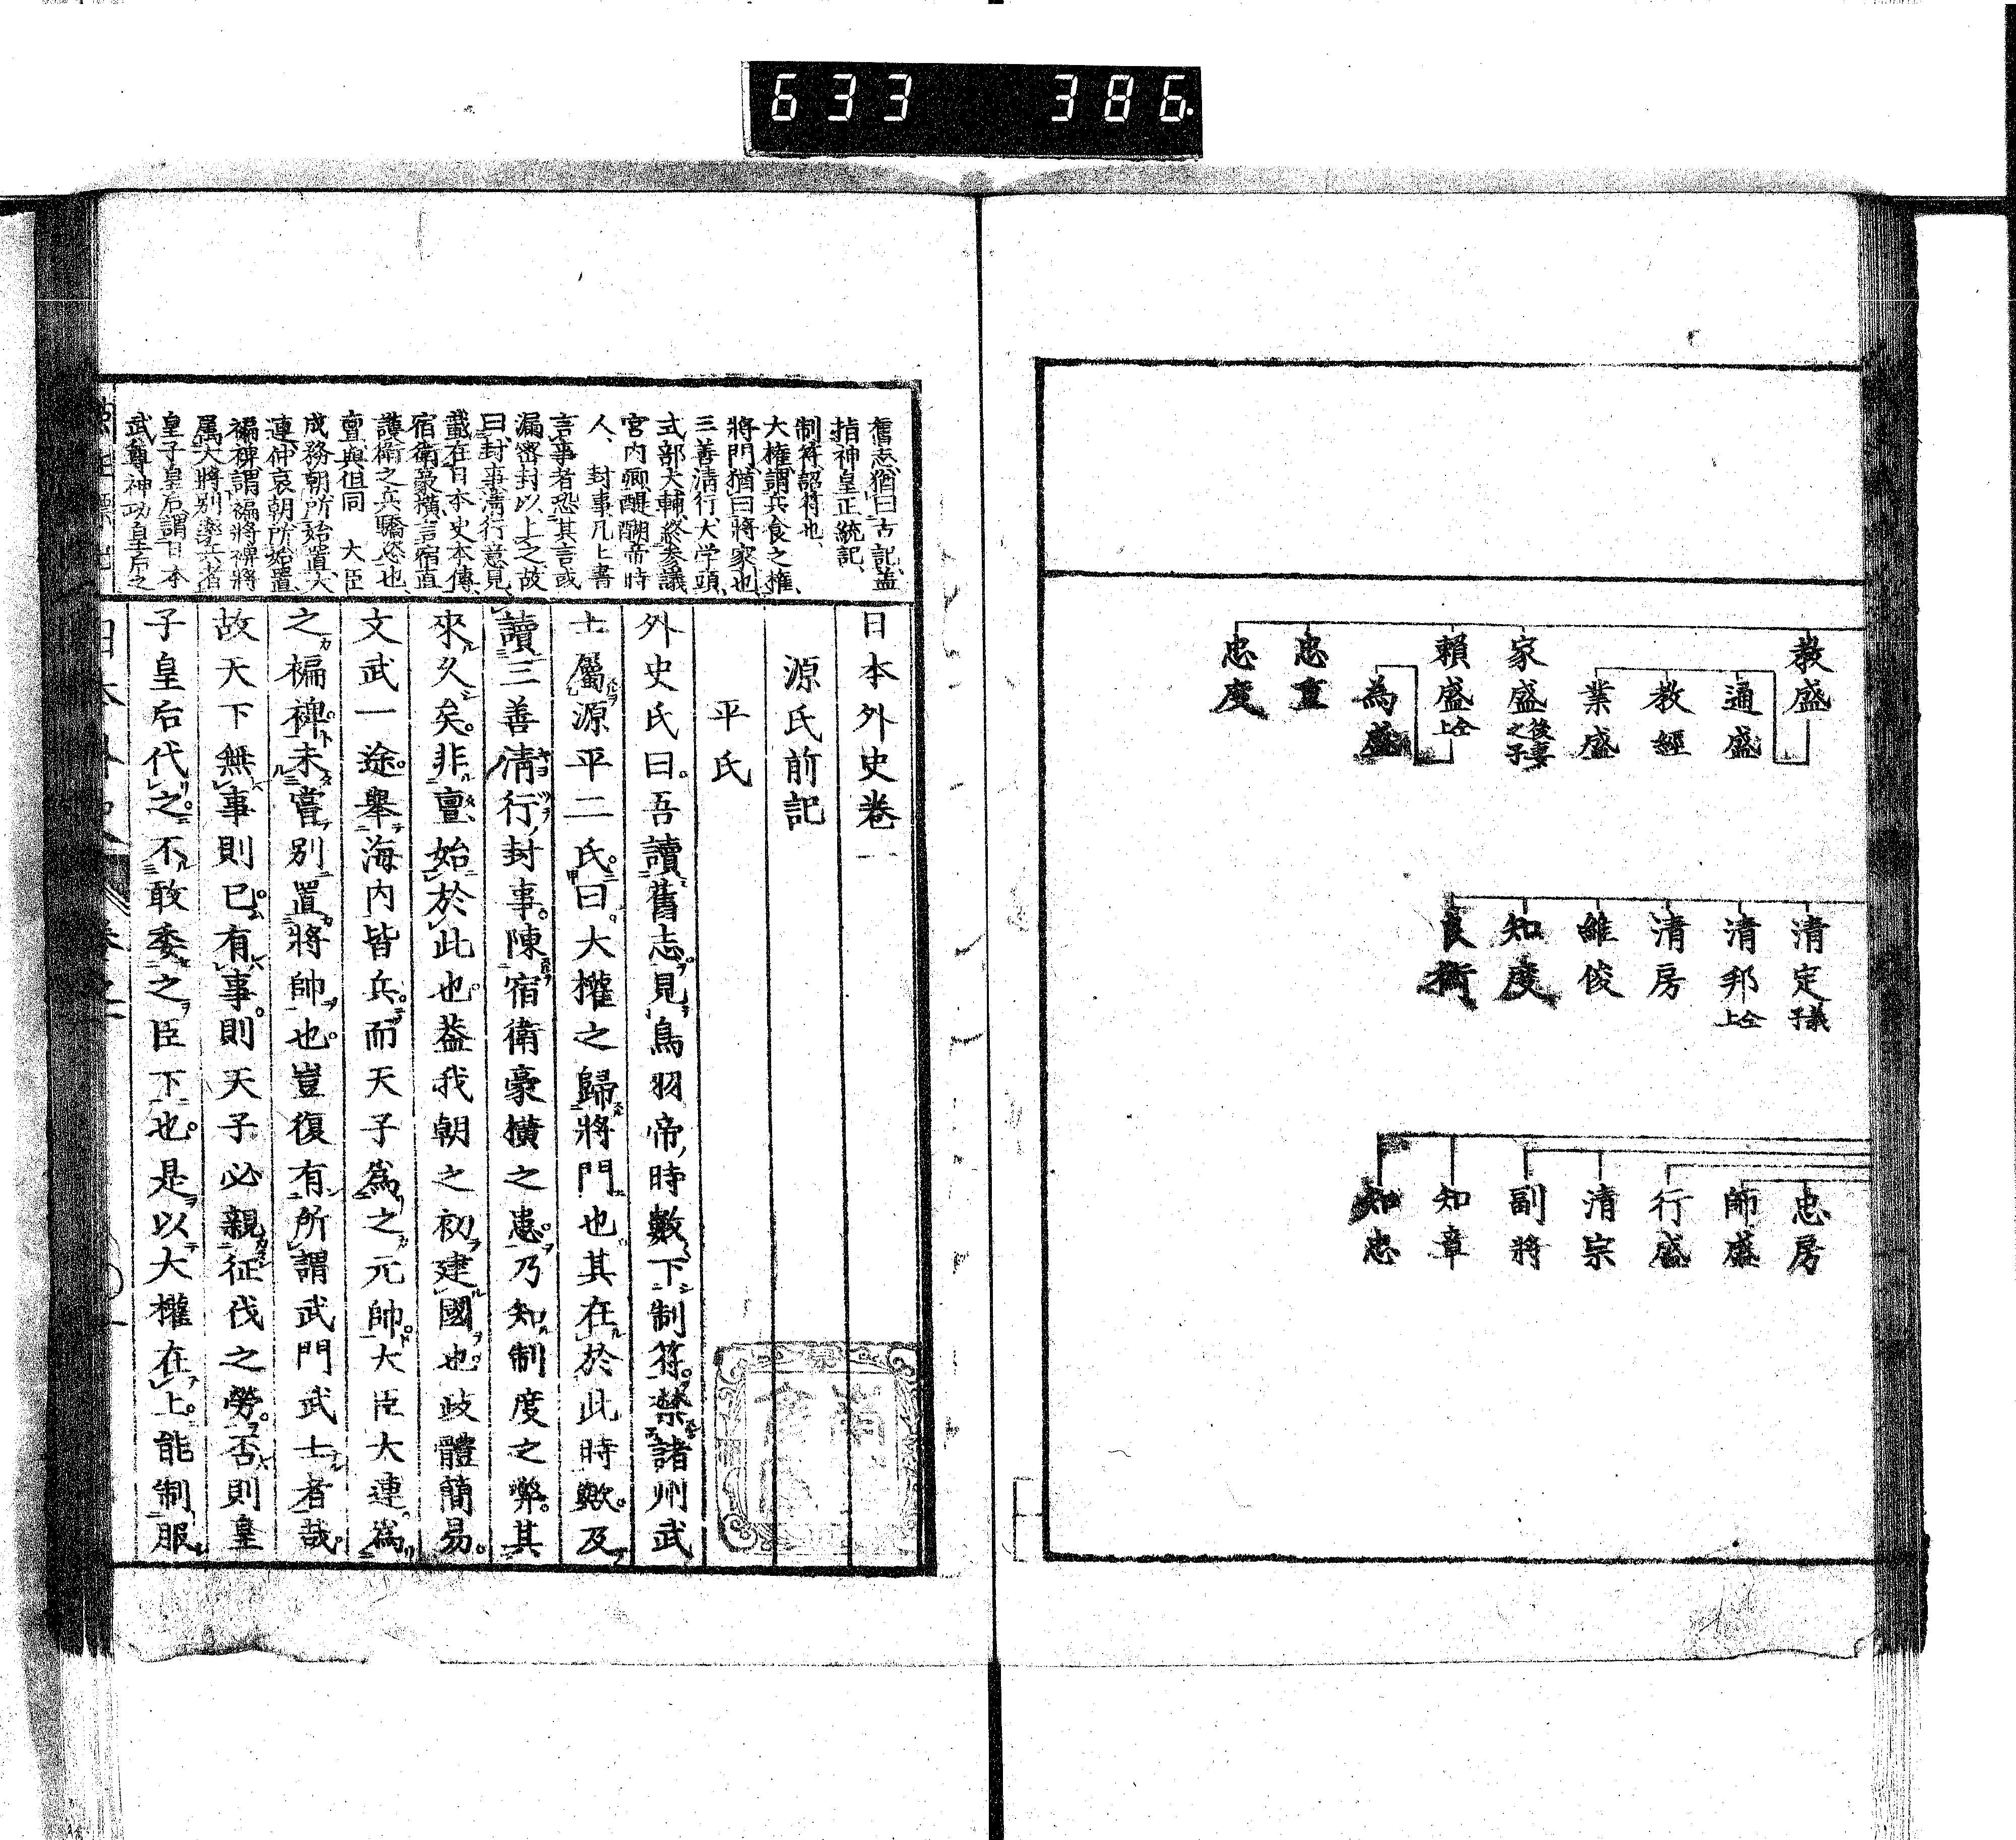 633 386
教盛
通盛
教經
業盛
家盛 後妻之子
賴盛 仝上
為盛
忠重
忠度
清定 義子
清邦 仝上
清房
維俊
知度
良衡
忠房
師盛
行盛
清宗
副將
知章
知忠
舊志、猶曰古記、蓋
指神皇正統記、
制符、詔符也、
大權、謂兵食之權、
將門、猶曰將家也、
三善清行、大学頭、
式部大輔、終参議
宮内卿、醍醐帝時
人、 封事、凡上書
言事者、恐其言或
漏、密封以上之、故
曰封事、清行意見、
載在日本史本傳、
宿衛豪横、言宿直
護衛之兵驕恣也、
亶與但同 大臣
成務朝所始置、大
連、仲哀朝所始置、
褊裨、謂褊將裨將
属大將別率兵者
皇子皇后、謂日本
武尊神功皇后之
日本外史卷一
源氏前記
平氏
外史氏曰。吾讀舊志。見鳥羽帝時數下制符。禁諸州武
士屬源平二氏。曰。大權之歸將門也。其在於此時歟。及
讀三善清行封事。陳宿衛豪横之患。乃知制度之弊。其
來久矣。非亶始於此也。葢我朝之初建國也。政體簡易。
文武一途。舉海内皆兵。而天子爲之元帥。大臣大連爲
之褊裨。未嘗別置將帥也。豈復有所謂武門武士者哉。
故天下無事則已。有事。則天子必親征伐之勞。否則皇
子皇后代之。不敢委之臣下也。是以大權在上。能制服